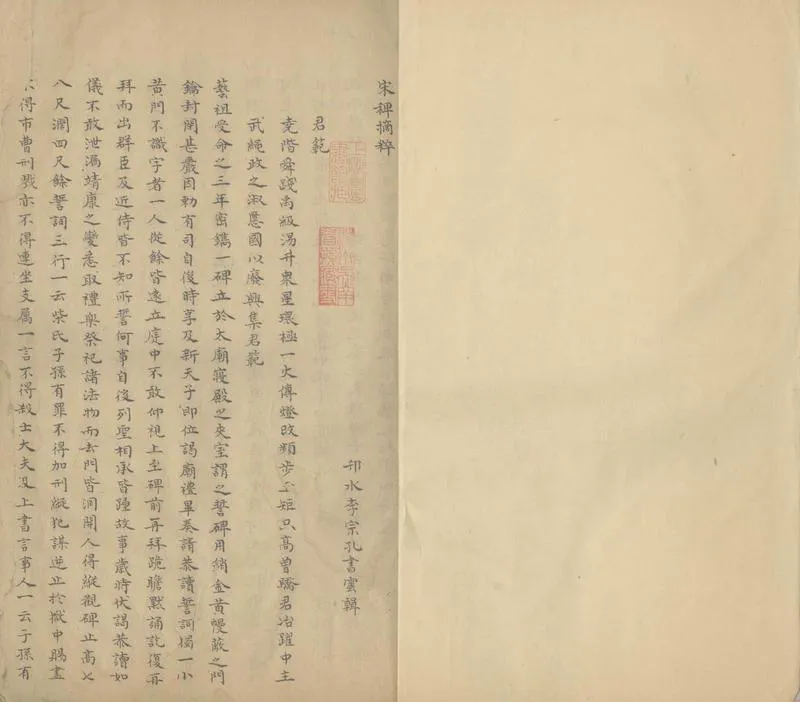 宋稗摘粹
邗水李宗孔書雲輯
君範
堯階舜踐禹級湯升衆星環極一火傳燈改頻步玉短只高曾驕君冶躍中主
武繩政之淑慝國以廢興集君範
藝祖受命之三年密鐫一碑立於太廟寢殿之夾室謂之誓碑用綃金黃幔蔽之門
鑰封閉甚嚴因勅有司自後時享及新天子即位謁廟禮畢奏請恭讀誓詞獨一小
黃門不識字者一人從餘皆遠立庭中不敢仰視上至碑前再拜跪瞻默誦訖復再
拜而出群臣及近侍皆不知所誓何事自後列聖相承皆踵故事歲時伏謁恭讀如
儀不敢泄漏靖康之變悉取禮樂祭祀諸法物而去門皆洞開人得縱觀碑止高七
八尺濶四尺餘誓詞三行一云柴氏子孫有罪不得加刑縱犯謀逆止於獄中賜盡
不得市曹刑戮亦不得連坐支屬一言不得殺士大夫及上書言事人一云子孫有